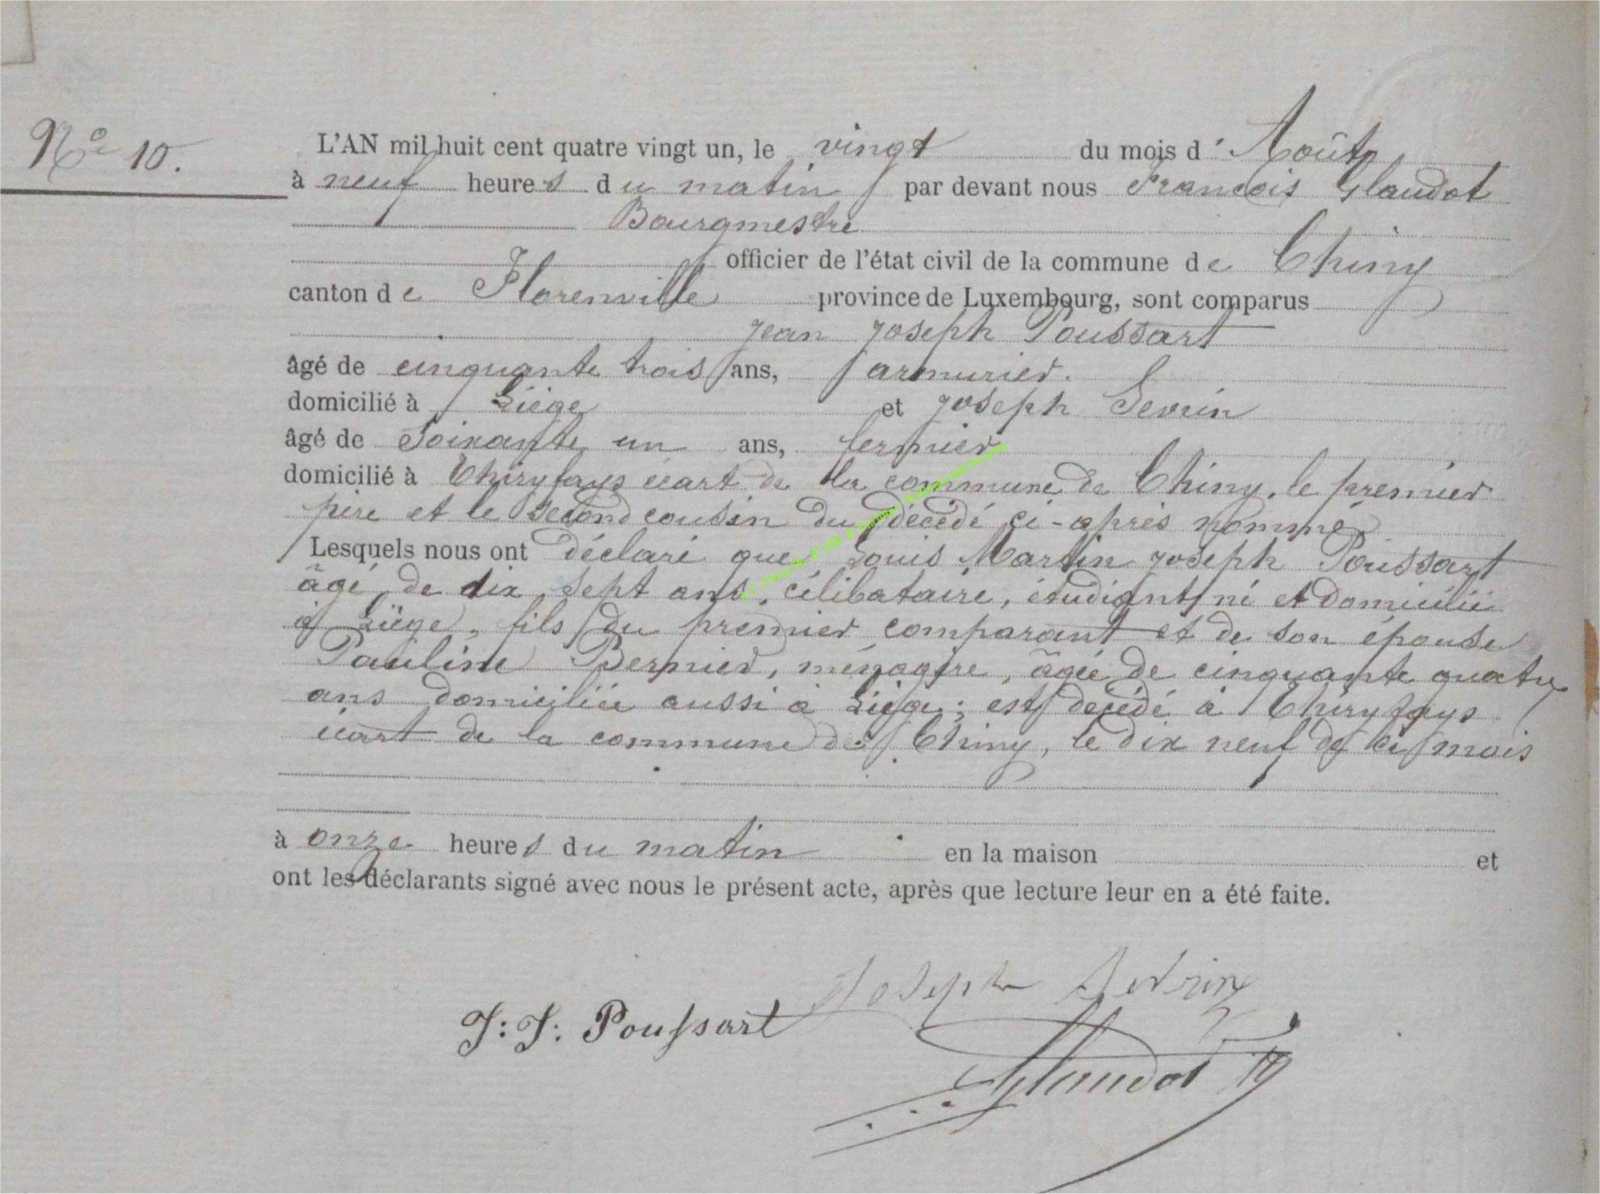 No 10.
L'AN mil huit cent quatre vingt un, le vingt du mois d'Août
à neuf heures du matin par devant nous François Glaudot
Bourgmestre
officier de l'état civil de la commune de Chiny
canton de Florenville province de Luxembourg, sont comparus
Jean Joseph Poussart
âgé de cinquante trois ans, armurier.
domicilié à Liège et Joseph Sevrin
âgé de Soixante un ans, fermier
domicilié à Thiryfays écart de la commune de Chiny, le premier
père et le second cousin du décédé ci-après nommé
Lesquels nous ont déclaré que Louis Martin Joseph Poussart
âgé de dix sept ans, célibataire, étudiant né et domicilié
à Liège, fils du premier comparant et de son épouse
Pauline Bernier, ménagère, âgée de cinquante quatre
ans domiciliée aussi à Liège; est décédé à Thiryfays
écart de la commune de Chiny, le dix neuf de ce mois
à onze heures du matin en la maison et
ont les déclarants signé avec nous le présent acte, après que lecture leur en a été faite.
Joseph Sevrin
J: J: Poussart
Glaudot